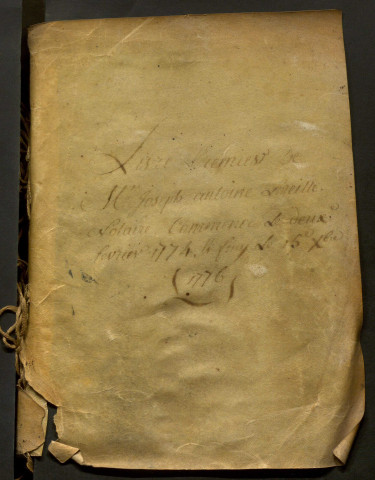 Livre Premier de
Mr Joseph antoine
Notaire Commencé Le deux
fevrier 1774 & finy Le 15 Xbre
(1776)